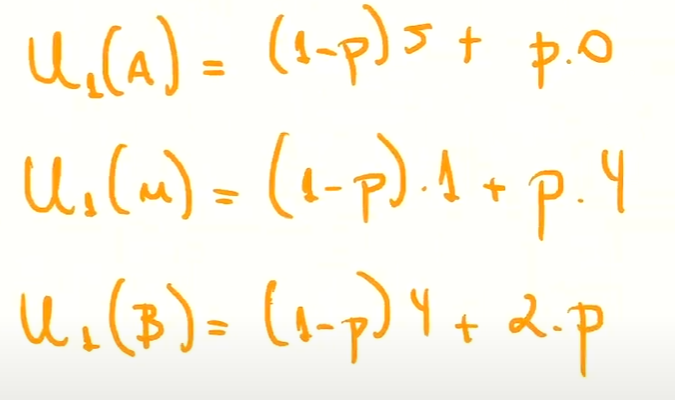 U₁(A) = (1-p) 5 + p.0
U₁(M) = (1-p).1 + p.4
U₁(B) = (1-p) 4 + 2.p